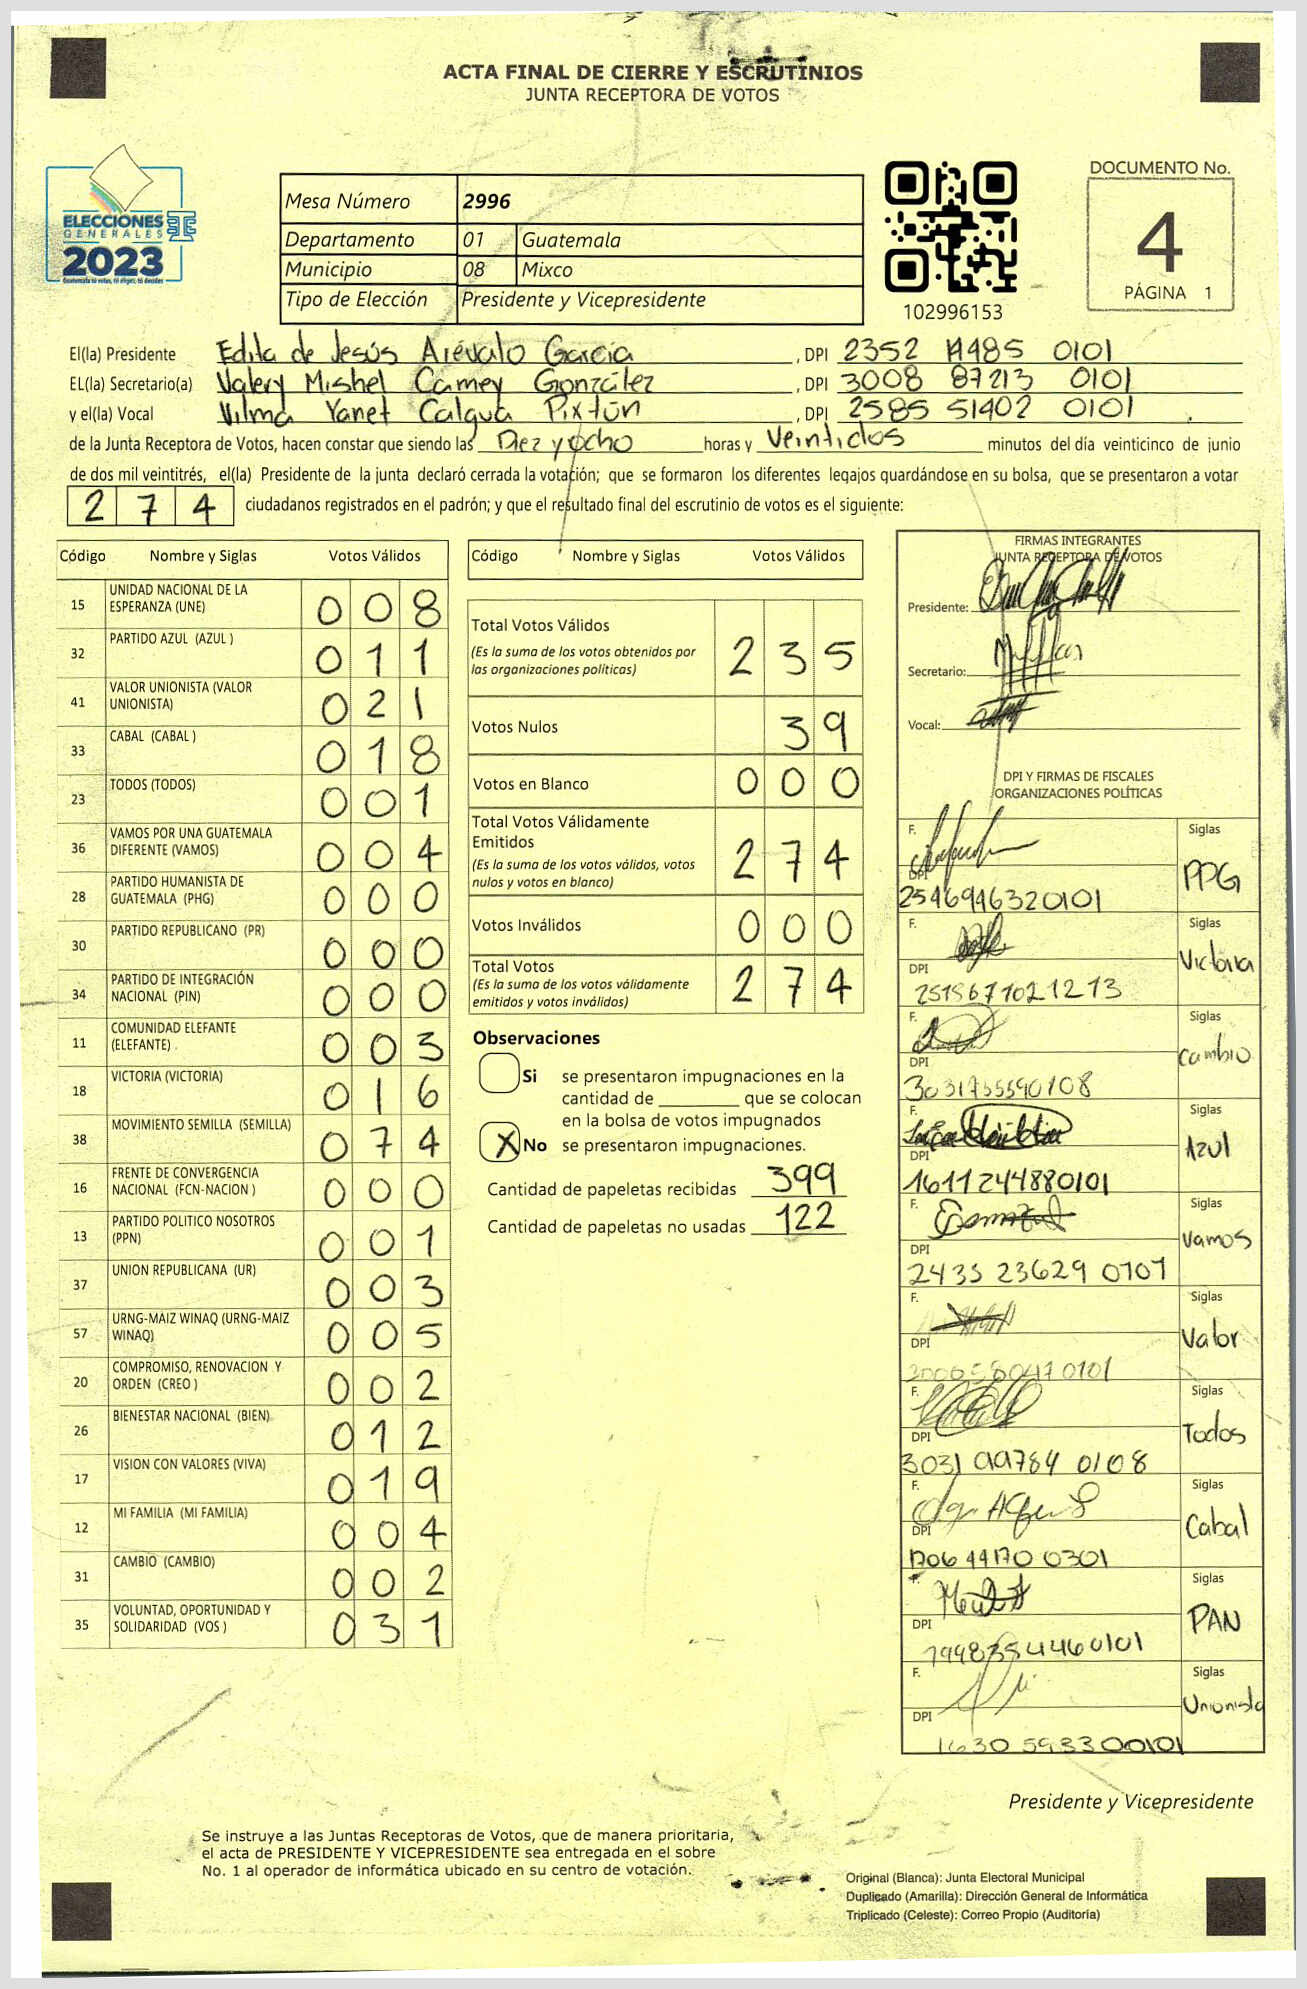 ACTA FINAL DE CIERRE Y ESCRUTINIOS
JUNTA RECEPTORA DE VOTOS
ELECCIONES
GENERALES
2023
Guatemala tú votas, tú eliges, tú decides
Mesa Número 2996
Departamento 01 Guatemala
Municipio 08 Mixco
Tipo de Elección Presidente y Vicepresidente
102996153
DOCUMENTO No.
4
PÁGINA 1
El(la) Presidente Edita de Jesús Arévalo García , DPI 2352 11485 0101
EL(la) Secretario(a) Valery Mishel Camey González , DPI 3008 87213 0101
y el(la) Vocal Vilma Yanet Calgua Pixtún , DPI 2585 51402 0101
de la Junta Receptora de Votos, hacen constar que siendo las Diez y ocho horas y Veintidos minutos del día veinticinco de junio
de dos mil veintitrés, el(la) Presidente de la junta declaró cerrada la votación; que se formaron los diferentes legajos quardándose en su bolsa, que se presentaron a votar
274 ciudadanos registrados en el padrón; y que el resultado final del escrutinio de votos es el siguiente:
Código Nombre y Siglas Votos Válidos
15 UNIDAD NACIONAL DE LA ESPERANZA (UNE) 008
32 PARTIDO AZUL (AZUL ) 011
41 VALOR UNIONISTA (VALOR UNIONISTA) 021
33 CABAL (CABAL ) 018
23 TODOS (TODOS) 001
36 VAMOS POR UNA GUATEMALA DIFERENTE (VAMOS) 004
28 PARTIDO HUMANISTA DE GUATEMALA (PHG) 000
30 PARTIDO REPUBLICANO (PR) 000
34 PARTIDO DE INTEGRACIÓN NACIONAL (PIN) 000
11 COMUNIDAD ELEFANTE (ELEFANTE) . 003
18 VICTORIA (VICTORIA) 016
38 MOVIMIENTO SEMILLA (SEMILLA) 074
16 FRENTE DE CONVERGENCIA NACIONAL (FCN-NACION ) 000
13 PARTIDO POLITICO NOSOTROS (PPN) 001
37 UNION REPUBLICANA (UR) 003
57 URNG-MAIZ WINAQ (URNG-MAIZ WINAQ) 005
20 COMPROMISO, RENOVACION Y ORDEN (CREO ) 002
26 BIENESTAR NACIONAL (BIEN) 012
17 VISION CON VALORES (VIVA) 019
12 MI FAMILIA (MI FAMILIA) 004
31 CAMBIO (CAMBIO) 002
35 VOLUNTAD, OPORTUNIDAD Y SOLIDARIDAD (VOS ) 031
Código Nombre y Siglas Votos Válidos
Total Votos Válidos 235
(Es la suma de los votos obtenidos por
las organizaciones politicas)
Votos Nulos 39
Votos en Blanco 000
Total Votos Válidamente
Emitidos 274
(Es la suma de los votos válidos, votos
nulos y votos en blanco)
Votos Inválidos 000
Total Votos 274
(Es la suma de los votos válidamente
emitidos y votos inválidos)
Observaciones
Si se presentaron impugnaciones en la
cantidad de ________ que se colocan
en la bolsa de votos impugnados
X No se presentaron impugnaciones.
Cantidad de papeletas recibidas 399
Cantidad de papeletas no usadas 122
FIRMAS INTEGRANTES
JUNTA RECEPTORA DE VOTOS
Presidente:
Secretario:
Vocal:
DPI Y FIRMAS DE FISCALES
ORGANIZACIONES POLÍTICAS
F. Siglas
DPI PPG
2546946320101
F. Siglas
DPI Victoria
2519671021213
F. Siglas
DPI Cambio
F. Siglas
DPI Azul
1611244880101
F. Siglas
DPI Vamos
2435 23629 0101
F. Siglas
DPI Valor
F. Siglas
DPI Todos
F. Siglas
DPI Cabal
F. Siglas
DPI PAN
F. Siglas
DPI Unionista
1630 59330 0101
Presidente y Vicepresidente
Se instruye a las Juntas Receptoras de Votos, que de manera prioritaria,
el acta de PRESIDENTE Y VICEPRESIDENTE sea entregada en el sobre
No. 1 al operador de informática ubicado en su centro de votación.
Original (Blanca): Junta Electoral Municipal
Duplicado (Amarilla): Dirección General de Informática
Triplicado (Celeste): Correo Propio (Auditoría)